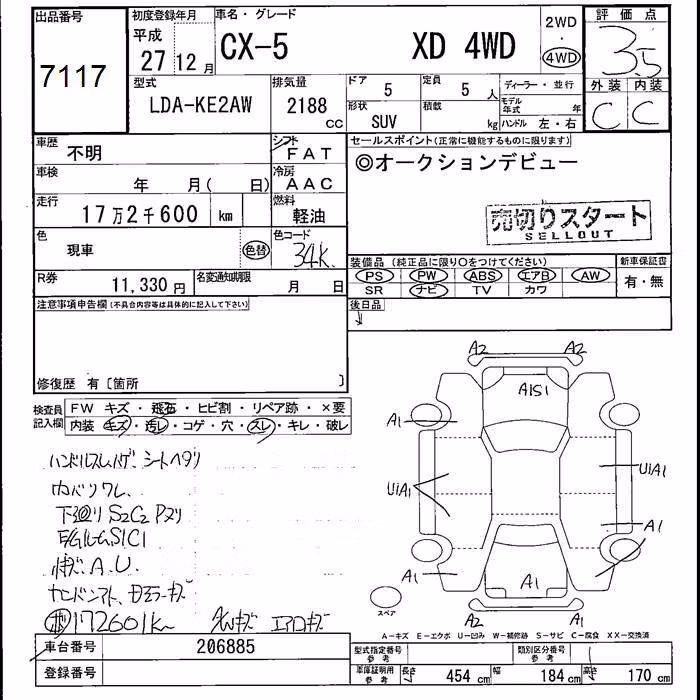 出品番号
7117
初度登録年月
平成
27 12 月
車名・グレード
CX-5 XD 4WD
2WD
・
4WD
評価点
3.5
外装 内装
C C
型式
LDA-KE2AW
排気量
2188 CC
ドア
5
定員
5 人
形状
SUV
積載
kg
ディーラー・並行
モデル年式 年
ハンドル 左・右
車歴
不明
シフト
FAT
車検
年 月( 日)
冷房
AAC
走行
17万2千600 km
燃料
軽油
色
現車 色替
色コード
34K
R券
11,330 円
名変通知期限
月 日
セールスポイント(正常に機能するものに限ります)
◎オークションデビュー
売切りスタート
SELLOUT
装備品 (純正品に限り○をつけてください)
PS PW ABS エアB AW
SR ナビ TV カワ
新車保証書
有・無
後日品
注意事項申告欄(不具合内容等は具体的に記入して下さい)
修復歴 有〔箇所 〕
検査員記入欄
FW キズ・飛石・ヒビ割・リペア跡・×要
内装 キズ・汚レ・コゲ・穴・スレ・キレ・破レ
ハンドルスレハゲ シートヘタリ
カバーワレ
下廻りS2C2 Pスリ
E/GルームS1C1
A.U.
172601K
AWキズ エアロキズ
A2 A2
A1S1
A1
U1A1
U1A1
A1
A1
A1
A2 A1
スペア
A-キズ E-エクボ U-凹み W-補修跡 S-サビ C-腐食 XX-交換済
車台番号
206885
登録番号
型式指定番号
参考
類別区分番号
参考
車庫証明用
参考
長さ 454 cm 幅 184 cm 高さ 170 cm